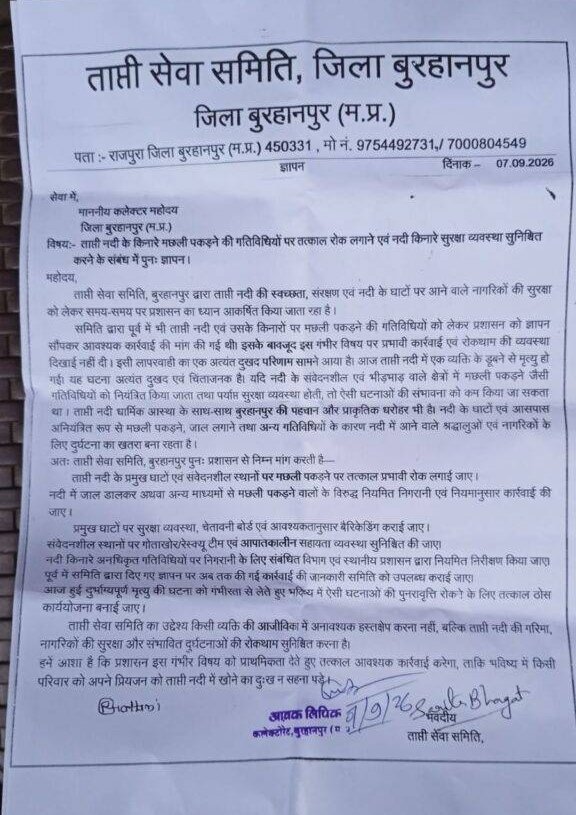 ताप्ती सेवा समिति, जिला बुरहानपुर
जिला बुरहानपुर (म.प्र.)
पता :- राजपुरा जिला बुरहानपुर (म.प्र.) 450331 , मो नं. 9754492731,/ 7000804549
ज्ञापन
दिनांक – 07.09.2026
सेवा में,
माननीय कलेक्टर महोदय
जिला बुरहानपुर (म.प्र.)
विषय:- ताप्ती नदी के किनारे मछली पकड़ने की गतिविधियों पर तत्काल रोक लगाने एवं नदी किनारे सुरक्षा व्यवस्था सुनिश्चित
करने के संबंध में पुनः ज्ञापन।
महोदय,
ताप्ती सेवा समिति, बुरहानपुर द्वारा ताप्ती नदी की स्वच्छता, संरक्षण एवं नदी के घाटों पर आने वाले नागरिकों की सुरक्षा
को लेकर समय-समय पर प्रशासन का ध्यान आकर्षित किया जाता रहा है।
समिति द्वारा पूर्व में भी ताप्ती नदी एवं उसके किनारों पर मछली पकड़ने की गतिविधियों को लेकर प्रशासन को ज्ञापन
सौंपकर आवश्यक कार्रवाई की मांग की गई थी। इसके बावजूद इस गंभीर विषय पर प्रभावी कार्रवाई एवं रोकथाम की व्यवस्था
दिखाई नहीं दी। इसी लापरवाही का एक अत्यंत दुखद परिणाम सामने आया है। आज ताप्ती नदी में एक व्यक्ति के डूबने से मृत्यु हो
गई। यह घटना अत्यंत दुखद एवं चिंताजनक है। यदि नदी के संवेदनशील एवं भीड़भाड़ वाले क्षेत्रों में मछली पकड़ने जैसी
गतिविधियों को नियंत्रित किया जाता तथा पर्याप्त सुरक्षा व्यवस्था होती, तो ऐसी घटनाओं की संभावना को कम किया जा सकता
था। ताप्ती नदी धार्मिक आस्था के साथ-साथ बुरहानपुर की पहचान और प्राकृतिक धरोहर भी है। नदी के घाटों एवं आसपास
अनियंत्रित रूप से मछली पकड़ने, जाल लगाने तथा अन्य गतिविधियों के कारण नदी में आने वाले श्रद्धालुओं एवं नागरिकों के
लिए दुर्घटना का खतरा बना रहता है।
अतः ताप्ती सेवा समिति, बुरहानपुर पुनः प्रशासन से निम्न मांग करती है—
ताप्ती नदी के प्रमुख घाटों एवं संवेदनशील स्थानों पर मछली पकड़ने पर तत्काल प्रभावी रोक लगाई जाए।
नदी में जाल डालकर अथवा अन्य माध्यमों से मछली पकड़ने वालों के विरुद्ध नियमित निगरानी एवं नियमानुसार कार्रवाई की
जाए।
प्रमुख घाटों पर सुरक्षा व्यवस्था, चेतावनी बोर्ड एवं आवश्यकतानुसार बैरिकेडिंग कराई जाए।
संवेदनशील स्थानों पर गोताखोर/रेस्क्यू टीम एवं आपातकालीन सहायता व्यवस्था सुनिश्चित की जाए।
नदी किनारे अनधिकृत गतिविधियों पर निगरानी के लिए संबंधित विभाग एवं स्थानीय प्रशासन द्वारा नियमित निरीक्षण किया जाए।
पूर्व में समिति द्वारा दिए गए ज्ञापन पर अब तक की गई कार्रवाई की जानकारी समिति को उपलब्ध कराई जाए।
आज हुई दुर्भाग्यपूर्ण मृत्यु की घटना को गंभीरता से लेते हुए भविष्य में ऐसी घटनाओं की पुनरावृत्ति रोकने के लिए तत्काल ठोस
कार्ययोजना बनाई जाए।
ताप्ती सेवा समिति का उद्देश्य किसी व्यक्ति की आजीविका में अनावश्यक हस्तक्षेप करना नहीं, बल्कि ताप्ती नदी की गरिमा,
नागरिकों की सुरक्षा और संभावित दुर्घटनाओं की रोकथाम सुनिश्चित करना है।
हमें आशा है कि प्रशासन इस गंभीर विषय को प्राथमिकता देते हुए तत्काल आवश्यक कार्रवाई करेगा, ताकि भविष्य में किसी
परिवार को अपने प्रियजन को ताप्ती नदी में खोने का दुःख न सहना पड़े।
आवक लिपिक
कलेक्टोरेट, बुरहानपुर (म
9/9/26
Bhagat
भवदीय
ताप्ती सेवा समिति,